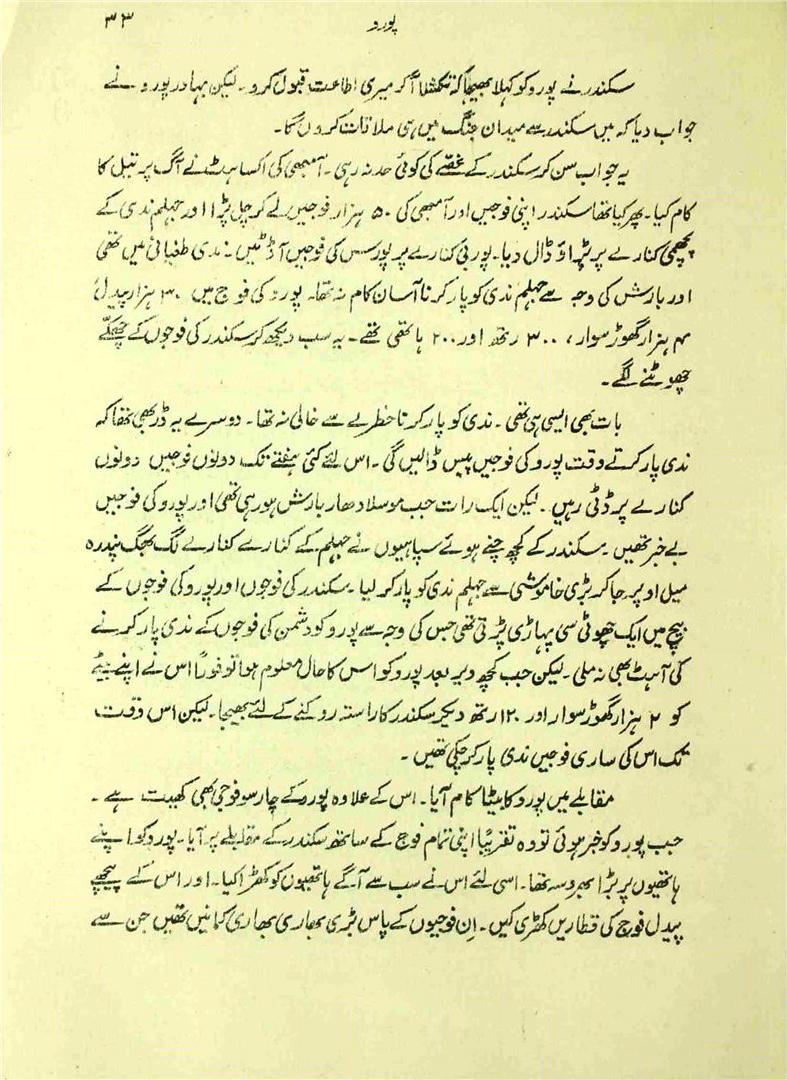 پورو ۳۳
سکندر نے پورو کو کہلا بھیجا کہ تکشلا آکر میری اطاعت قبول کرو۔ لیکن بہادر پورو نے
جواب دیا کہ میں سکندر سے میدان جنگ میں ہی ملاقات کروں گا۔
یہ جواب سن کر سکندر کے غصّے کی کوئی حد نہ رہی۔ آمبھی کی اکساہٹ نے آگ پر تیل کا
کام کیا۔ پھر کیا تھا سکندر اپنی فوجیں اور آمبھی کی ۵۰ ہزار فوجیں لے کر چل پڑا اور جہلم ندی کے
پچھمی کنارے پر پڑاؤ ڈال دیا۔ پوربی کنارے پر پورس کی فوجیں آ ڈٹیں۔ ندی طغیانی میں تھی
اور بارش کی وجہ سے جہلم ندی کو پار کرنا آسان کام نہ تھا۔ پورو کی فوج میں ۳۰ ہزار پیدل
۴ ہزار گھوڑ سوار، ۳۰۰ رتھ اور ۲۰۰ ہاتھی تھے۔ یہ سب دیکھ کر سکندر کی فوجوں کے چھکّے
چھوٹنے لگے۔
بات بھی ایسی ہی تھی۔ ندی کو پار کرنا خطرے سے خالی نہ تھا۔ دوسرے یہ ڈر بھی تھا کہ
ندی پار کرتے وقت پورو کی فوجیں پیس ڈالیں گی۔ اس لئے کئی ہفتے تک دونوں فوجیں دونوں
کنارے پر ڈٹی رہیں۔ لیکن ایک رات جب موسلا دھار بارش ہو رہی تھی اور پورو کی فوجیں
بے خبر تھیں۔ سکندر کے کچھ چنے ہوئے سپاہیوں نے جہلم کے کنارے کنارے لگ بھگ پندرہ
میل اوپر جا کر بڑی خاموشی سے جہلم ندی کو پار کر لیا۔ سکندر کی فوجوں اور پورو کی فوجوں کے
بیچ میں ایک چھوٹی سی پہاڑی پڑتی تھی جس کی وجہ سے پورو کو دشمن کی فوجوں کے ندی پار کرنے
کی آہٹ بھی نہ ملی۔ لیکن جب کچھ دیر بعد پورو کو اس کا حال معلوم ہوا تو فوراً اس نے اپنے بیٹے
کو ۲ ہزار گھوڑ سوار اور ۱۲۰ رتھ دیکر سکندر کا راستہ روکنے کے لئے بھیجا۔ لیکن اس وقت
تک اس کی ساری فوجیں ندی پار کر چکی تھیں۔
مقابلے میں پورو کا بیٹا کام آیا۔ اس کے علاوہ پورو کے چار سو فوجی بھی کھیت رہے۔
جب پورو کو خبر ہوئی تو وہ تقریباً اپنی تمام فوج کے ساتھ سکندر کے مقابلے پر آیا۔ پورو کو اپنے
ہاتھیوں پر بڑا بھروسہ تھا۔ اسی لئے اس نے سب سے آگے ہاتھیوں کو کھڑا کیا۔ اور اس کے پیچھے
پیدل فوج کی قطاریں کھڑی کیں۔ اِن فوجیوں کے پاس بڑی بھاری بھاری کمانیں تھیں جن سے